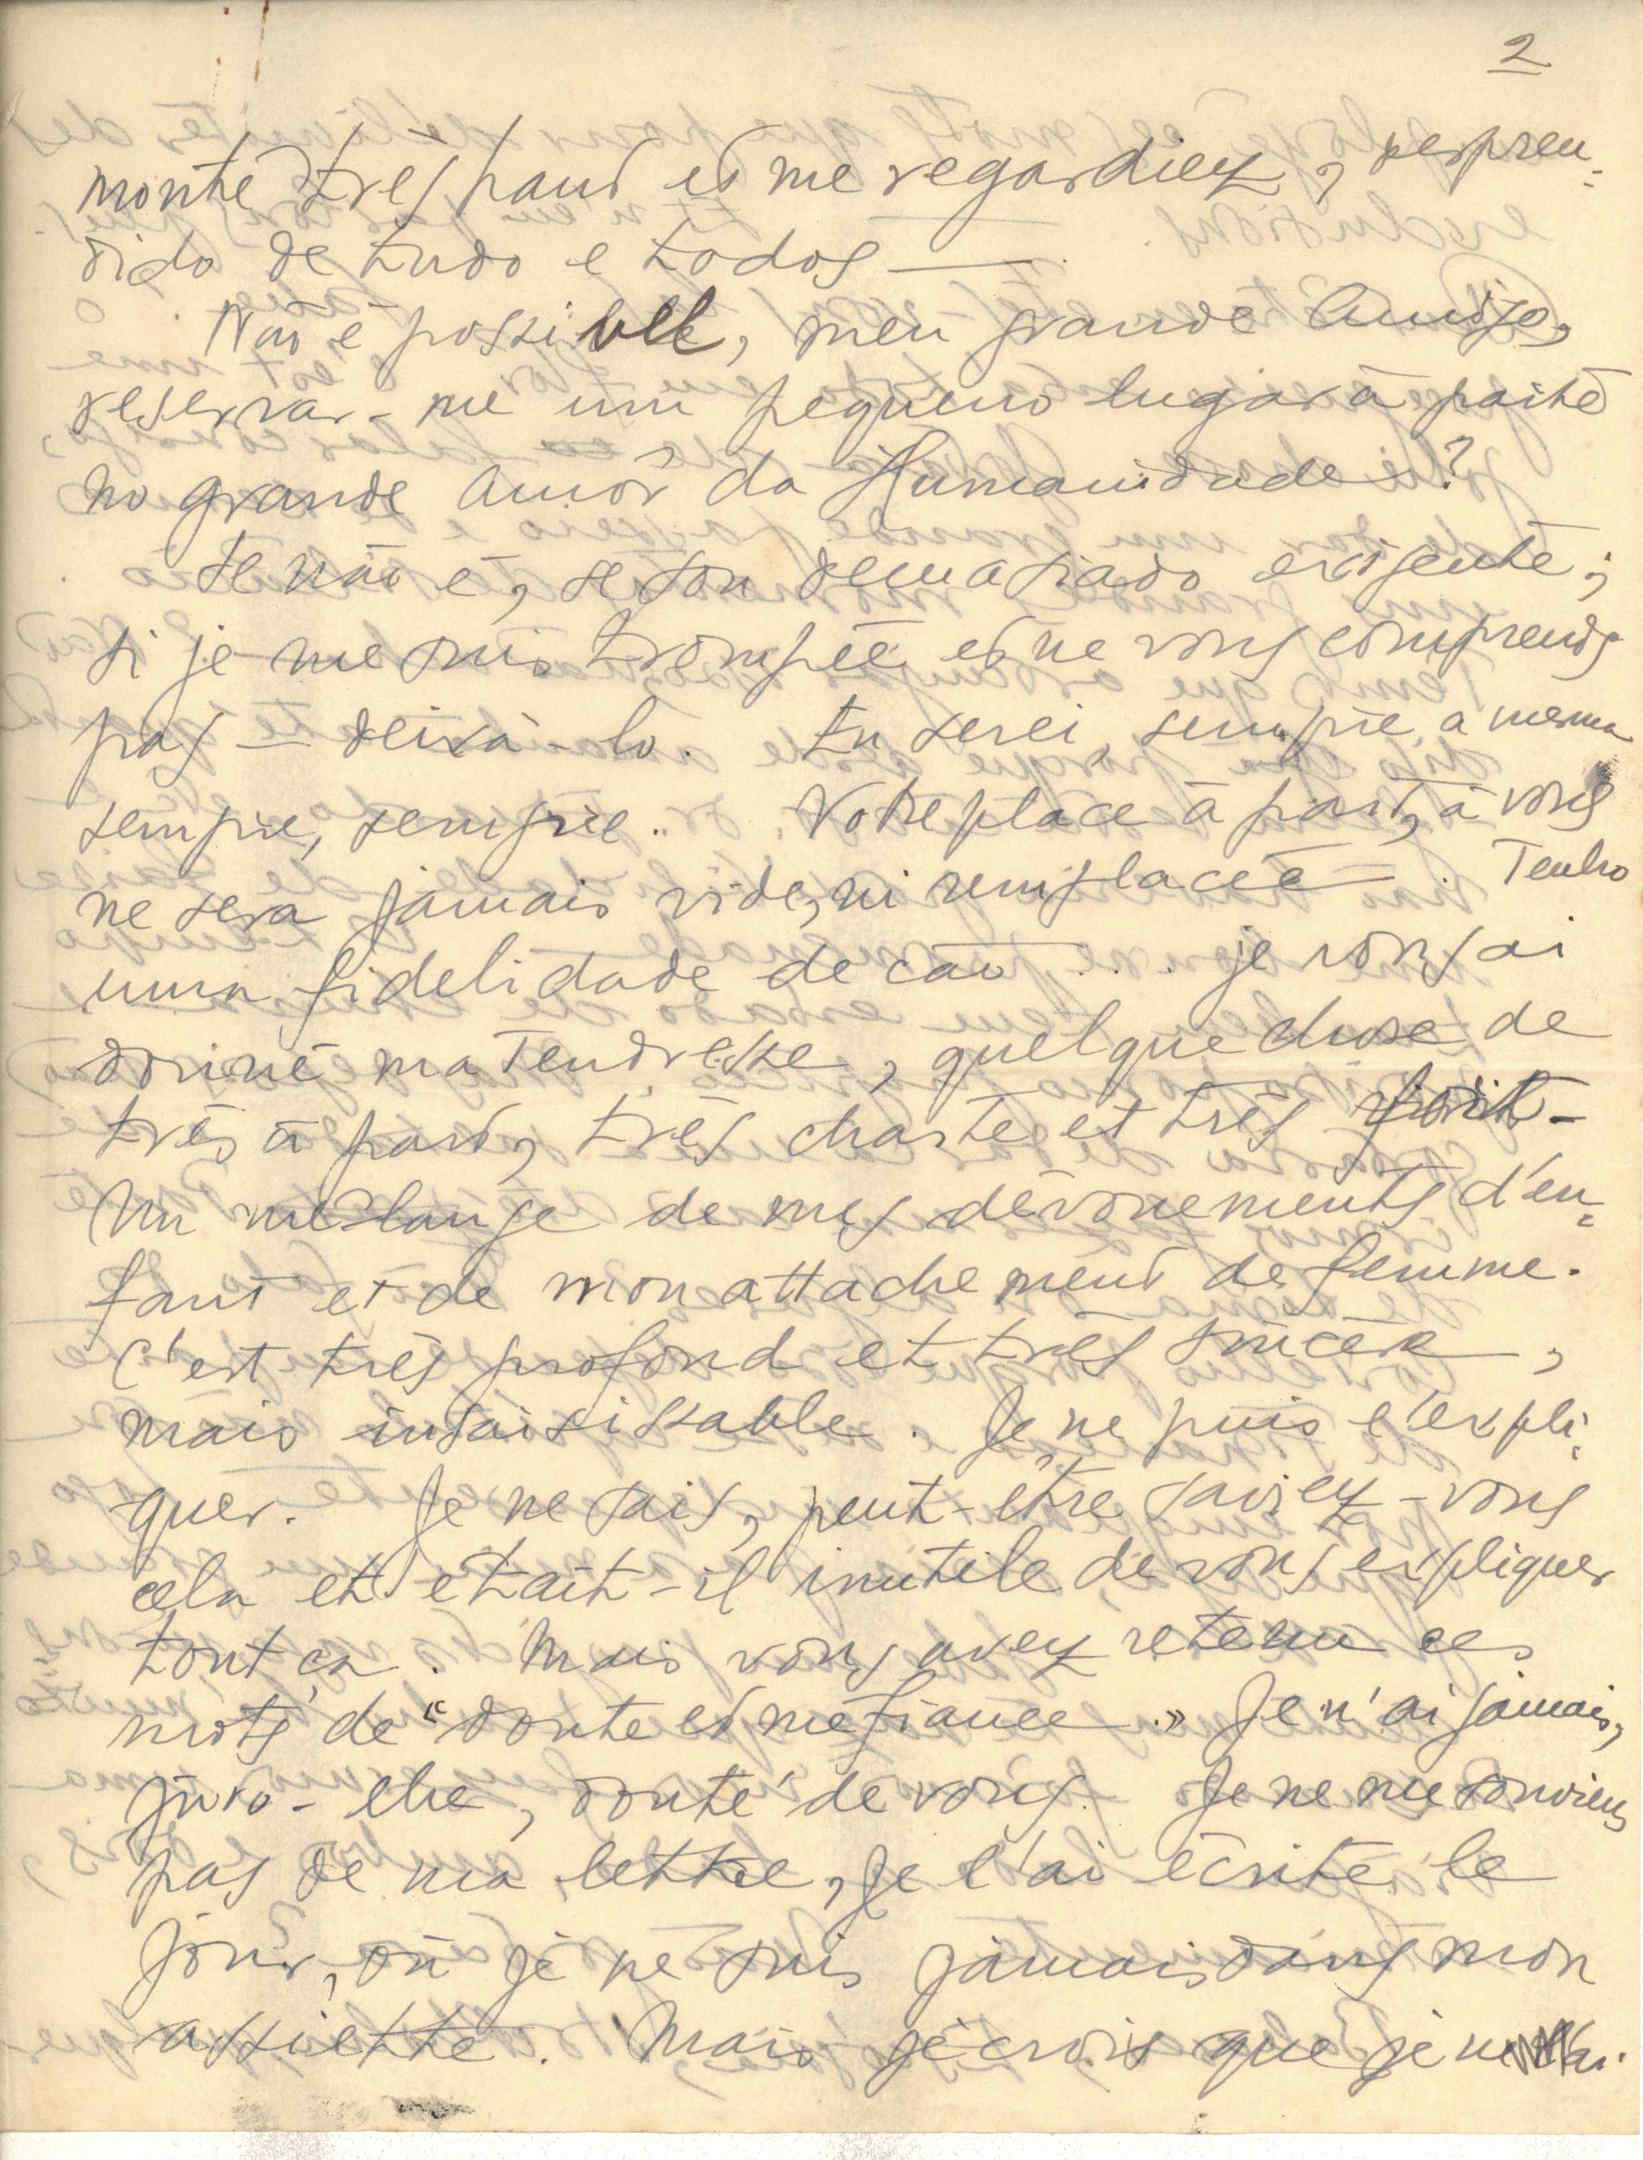 2
monté très haut et me regardiez, despren-
dido de tudo e todos —
Não é possivel, meu grande Amigo,
reservar-me um pequeno lugar à parte
no grande Amôr da Humanidade?
Se não é, se sou demasiado exigente,
si je me suis trompée et ne vous comprends
pas — deixà-lo. Eu serei, sempre a mesma
sempre, sempre.. Votre place à part, à vous
ne sera jamais vide, ni remplacée —. Tenho
uma fidelidade de cão .... je vous ai
donné ma tendresse, quelque chose de
très à part, très chaste et très
Un mélange de mes dévouements d'en-
fant et de mon attachement de femme.
C'est très profond et très sincère,
mais insaisissable. Je ne puis l'expli-
quer. Je ne sais, peut-être saviez-vous
cela et était-il inutile de vous expliquer
tout ça. Mais vous avez retenu ces
mots de "doute et méfiance." Je n'ai jamais,
juro-lhe, douté de vous. Je ne me souviens
pas de ma lettre, je l'ai écrite le
jour, où je ne suis jamais dans mon
assiette. Mais je crois que je ne